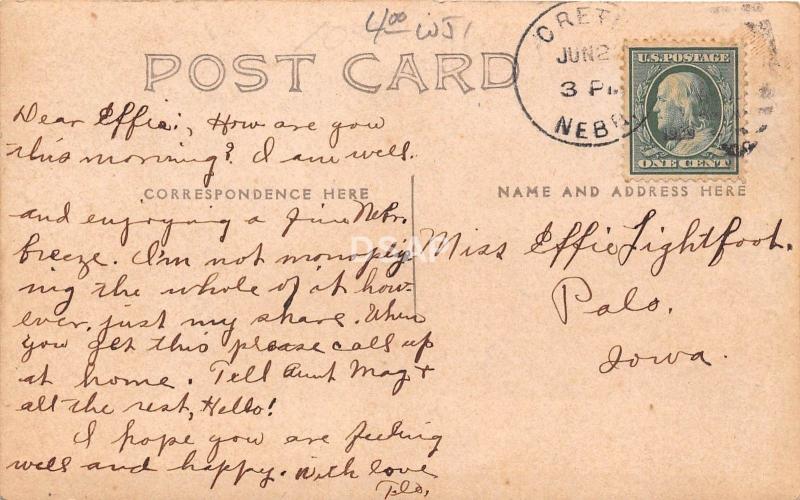 4⁰⁰ WJ1
POST CARD
CRETE
JUN 2
3 PM
NEBR
U.S. POSTAGE
ONE CENT
Dear Effie:, How are you
this morning? I am well
CORRESPONDENCE HERE
NAME AND ADDRESS HERE
and enjoying a fine Nebr.
breeze. I'm not monoply-
ing the whole of it how-
ever, just my share. When
you get this please call up
at home. Tell Aunt May +
all the rest, Hello!
I hope you are feeling
well and happy. With love
Flo.
Miss Effie Lightfoot.
Palo.
Iowa.
DSAP